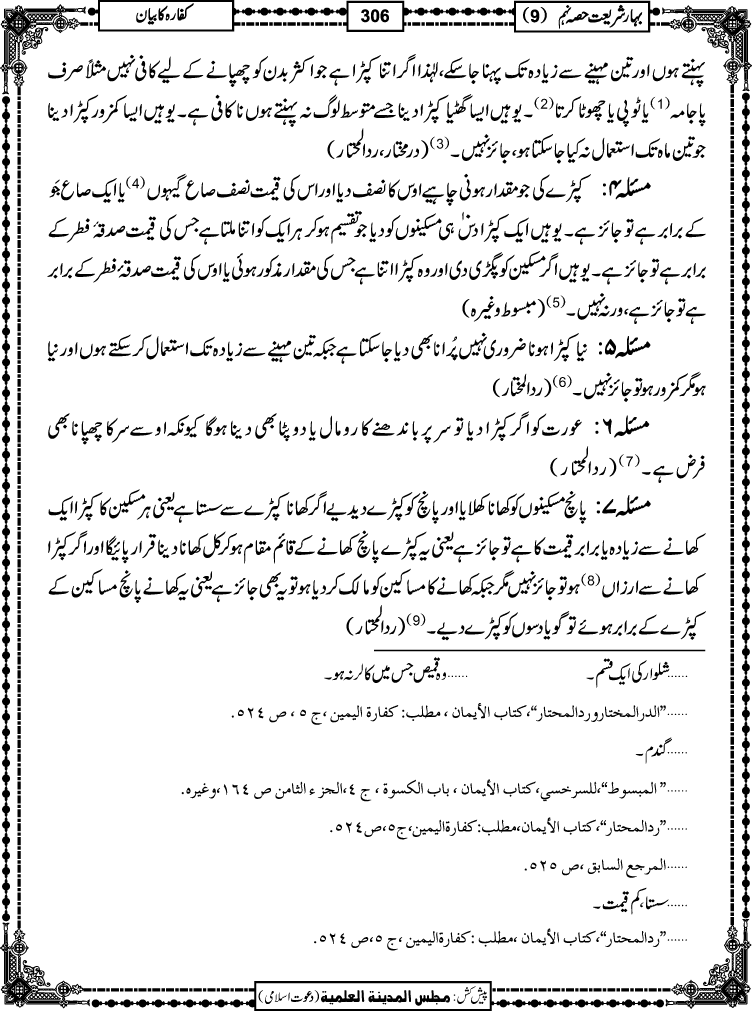 بہار شریعت حصہ نہم (9)
306
کفارہ کا بیان
پہنتے ہوں اور تین مہینے سے زیادہ تک پہنا جاسکے، لہٰذا اگر اتنا کپڑا ہے جو اکثر بدن کو چھپانے کے لیے کافی نہیں مثلاً صرف
پاجامہ (1) یا ٹوپی یا چھوٹا کرتا (2)۔ یوہیں ایسا گھٹیا کپڑا دینا جسے متوسط لوگ نہ پہنتے ہوں ناکافی ہے۔ یوہیں ایسا کمزور کپڑا دینا
جو تین ماہ تک استعمال نہ کیا جاسکتا ہو، جائز نہیں۔ (3) (درمختار، ردالمحتار)
مسئلہ ۴: کپڑے کی جو مقدار ہونی چاہیے اوس کا نصف دیا اور اس کی قیمت نصف صاع گیہوں (4) یا ایک صاع جَو
کے برابر ہے تو جائز ہے۔ یوہیں ایک کپڑا دس۱۰ ہی مسکینوں کو دیا جو تقسیم ہوکر ہر ایک کو اتنا ملتا ہے جس کی قیمت صدقۂ فطر کے
برابر ہے تو جائز ہے۔ یوہیں اگر مسکین کو پگڑی دی اور وہ کپڑا اتنا ہے جس کی مقدار مذکور ہوئی یا اوس کی قیمت صدقۂ فطر کے برابر
ہے تو جائز ہے، ورنہ نہیں۔ (5) (مبسوط وغیرہ)
مسئلہ ۵: نیا کپڑا ہونا ضروری نہیں پُرانا بھی دیا جاسکتا ہے جبکہ تین مہینے سے زیادہ تک استعمال کرسکتے ہوں اور نیا
ہو مگر کمزور ہو تو جائز نہیں۔ (6) (ردالمختار)
مسئلہ ۶: عورت کو اگر کپڑا دیا تو سر پر باندھنے کا رومال یا دوپٹا بھی دینا ہوگا کیونکہ اوسے سر کا چھپانا بھی
فرض ہے۔ (7) (ردالمحتار)
مسئلہ ۷: پانچ مسکینوں کو کھانا کھلایا اور پانچ کو کپڑے دیدیے اگر کھانا کپڑے سے سستا ہے یعنی ہر مسکین کا کپڑا ایک
کھانے سے زیادہ یا برابر قیمت کا ہے تو جائز ہے یعنی یہ کپڑے پانچ کھانے کے قائم مقام ہوکر کل کھانا دینا قرار پائیگا اور اگر کپڑا
کھانے سے ارزاں (8) ہو تو جائز نہیں مگر جبکہ کھانے کا مساکین کو مالک کردیا ہو تو یہ بھی جائز ہے یعنی یہ کھانے پانچ مساکین کے
کپڑے کے برابر ہوئے تو گویا دسوں کو کپڑے دیے۔ (9) (ردالمحتار)
......شلوار کی ایک قسم۔ ......وہ قمیص جس میں کالر نہ ہو۔
......”الدرالمختار وردالمحتار“، كتاب الأيمان، مطلب: كفارة اليمين، ج ٥، ص ٥٢٤.
......گندم۔
......” المبسوط“، للسرخسي، كتاب الأيمان، باب الكسوة، ج ٤، الجزء الثامن ص ١٦٤، وغيره.
......”ردالمحتار“، كتاب الأيمان، مطلب: كفارة اليمين، ج٥، ص٥٢٤.
......المرجع السابق، ص ٥٢٥.
......سستا، کم قیمت۔
......”ردالمحتار“، كتاب الأيمان، مطلب: كفارة اليمين، ج ٥، ص ٥٢٤.
پیش کش: مجلس المدينة العلمية (دعوت اسلامی)